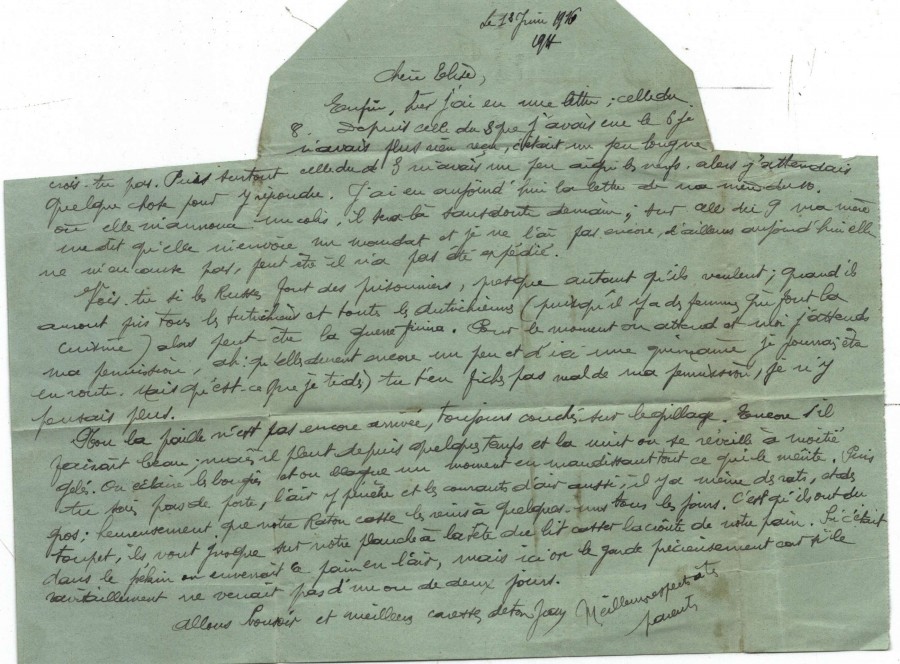 Le 13 Juin 1916
1914
Chère Elise,
Enfin, hier j'ai eu une lettre; celle du
8. Depuis celle du 3 que j'avais eue le 6 je
n'avais plus rien reçu, c'était un peu long ne
crois-tu pas. Puis surtout celle du 3 m'avais un peu aigri les nerfs, alors j'attendais
quelque chose pour y répondre. J'ai eu aujourd'hui la lettre de ma mère du 10.
où elle m'annonce un colis, il sera là sans doute demain; sur celle du 9 ma mère
me dit qu'elle m'envoie un mandat et je ne l'ai pas encore, d'ailleurs aujourd'hui elle
ne m'en cause pas, peut être il n'a pas été expédié.
Vois-tu si les Russes font des prisonniers, presque autant qu'ils veulent; quand ils
auront pris tous les Autrichiens et toutes les Autrichiennes (puisqu'il y a des femmes qui font la
cuisine) alors peut-être la guerre finira. Pour le moment on attend et moi j'attends
ma permission, ah! qu'elles durent encore un peu et d'ici une quinzaine je pourrais être
en route. Mais qu'est-ce que je te dis) tu t'en fiches pas mal de ma permission, je n'y
pensais plus.
Non la paille n'est pas encore arrivée, toujours couchés sur le grillage. Encore s'il
faisait beau; mais il pleut depuis quelques temps et la nuit on se réveille à moitié
gelés. On éclaire les bougies et on blague un moment en maudissant tout ce qui le mérite. Puis
tu sais pas de porte, l'air y pénètre et les courants d'air aussi, il y a même des rats, et des
gros; heureusement que notre Raton casse les reins à quelques-uns tous les jours. C'est qu'ils ont du
toupet, ils vont jusque sur notre planche à la tête du lit casser la croûte de notre pain. Si c'était
dans le on enverrait le pain en l'air, mais ici on le garde précieusement car si le
ravitaillement ne venait pas d'un ou de deux jours.
Allons bonsoir et meilleures caresses de ton Jacq Meilleurs respects à tes
parents